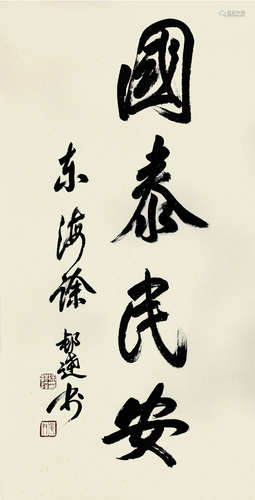 國泰民安
东海徐郁達书